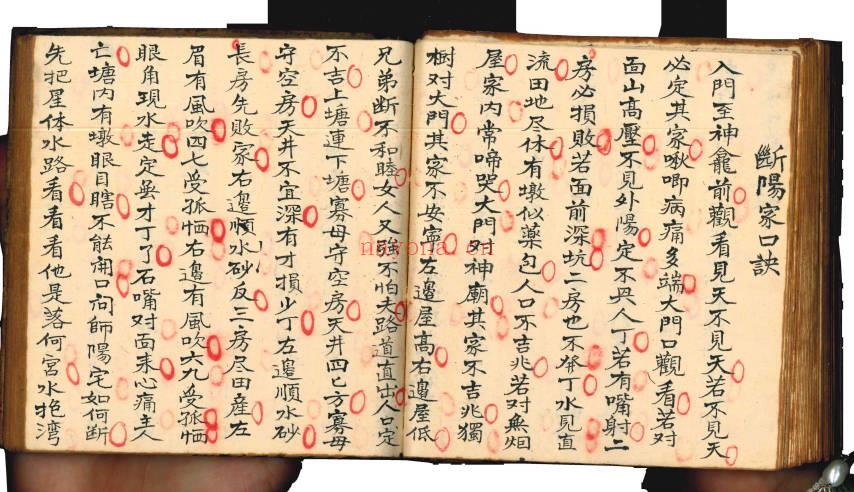 斷陽家口訣
入門至神龕前觀看見天不見天若不見天
必定其家啾唧病痛多端大門口觀看若对
面山高壓不見外陽定不兴人丁若有嘴射二
房必損敗若面前深坑二房也不發丁水見直
流田地尽休有墩似藥包人口不吉兆若对無烟
屋家内常啼哭大門对神廟其家不吉兆獨
樹对大門其家不安寧左邉屋高右邉屋低
兄弟断不和睦女人又強不怕夫路道直出人口定
不吉上塘連下塘寡母守空房天井四匕方寡母
守空房天井不宜深有才損少丁左邉順水砂
長房先敗家右邉順水砂反三房尽田産左
眉有風吹四七受孤恓右邉有風吹六九受孤恓
眼角現水走定主才丁了石嘴对面来心痛主人
亡塘内有墩眼目瞎不能開口问師陽宅如何断
先把星体水路看看看他是落何宮水抱湾